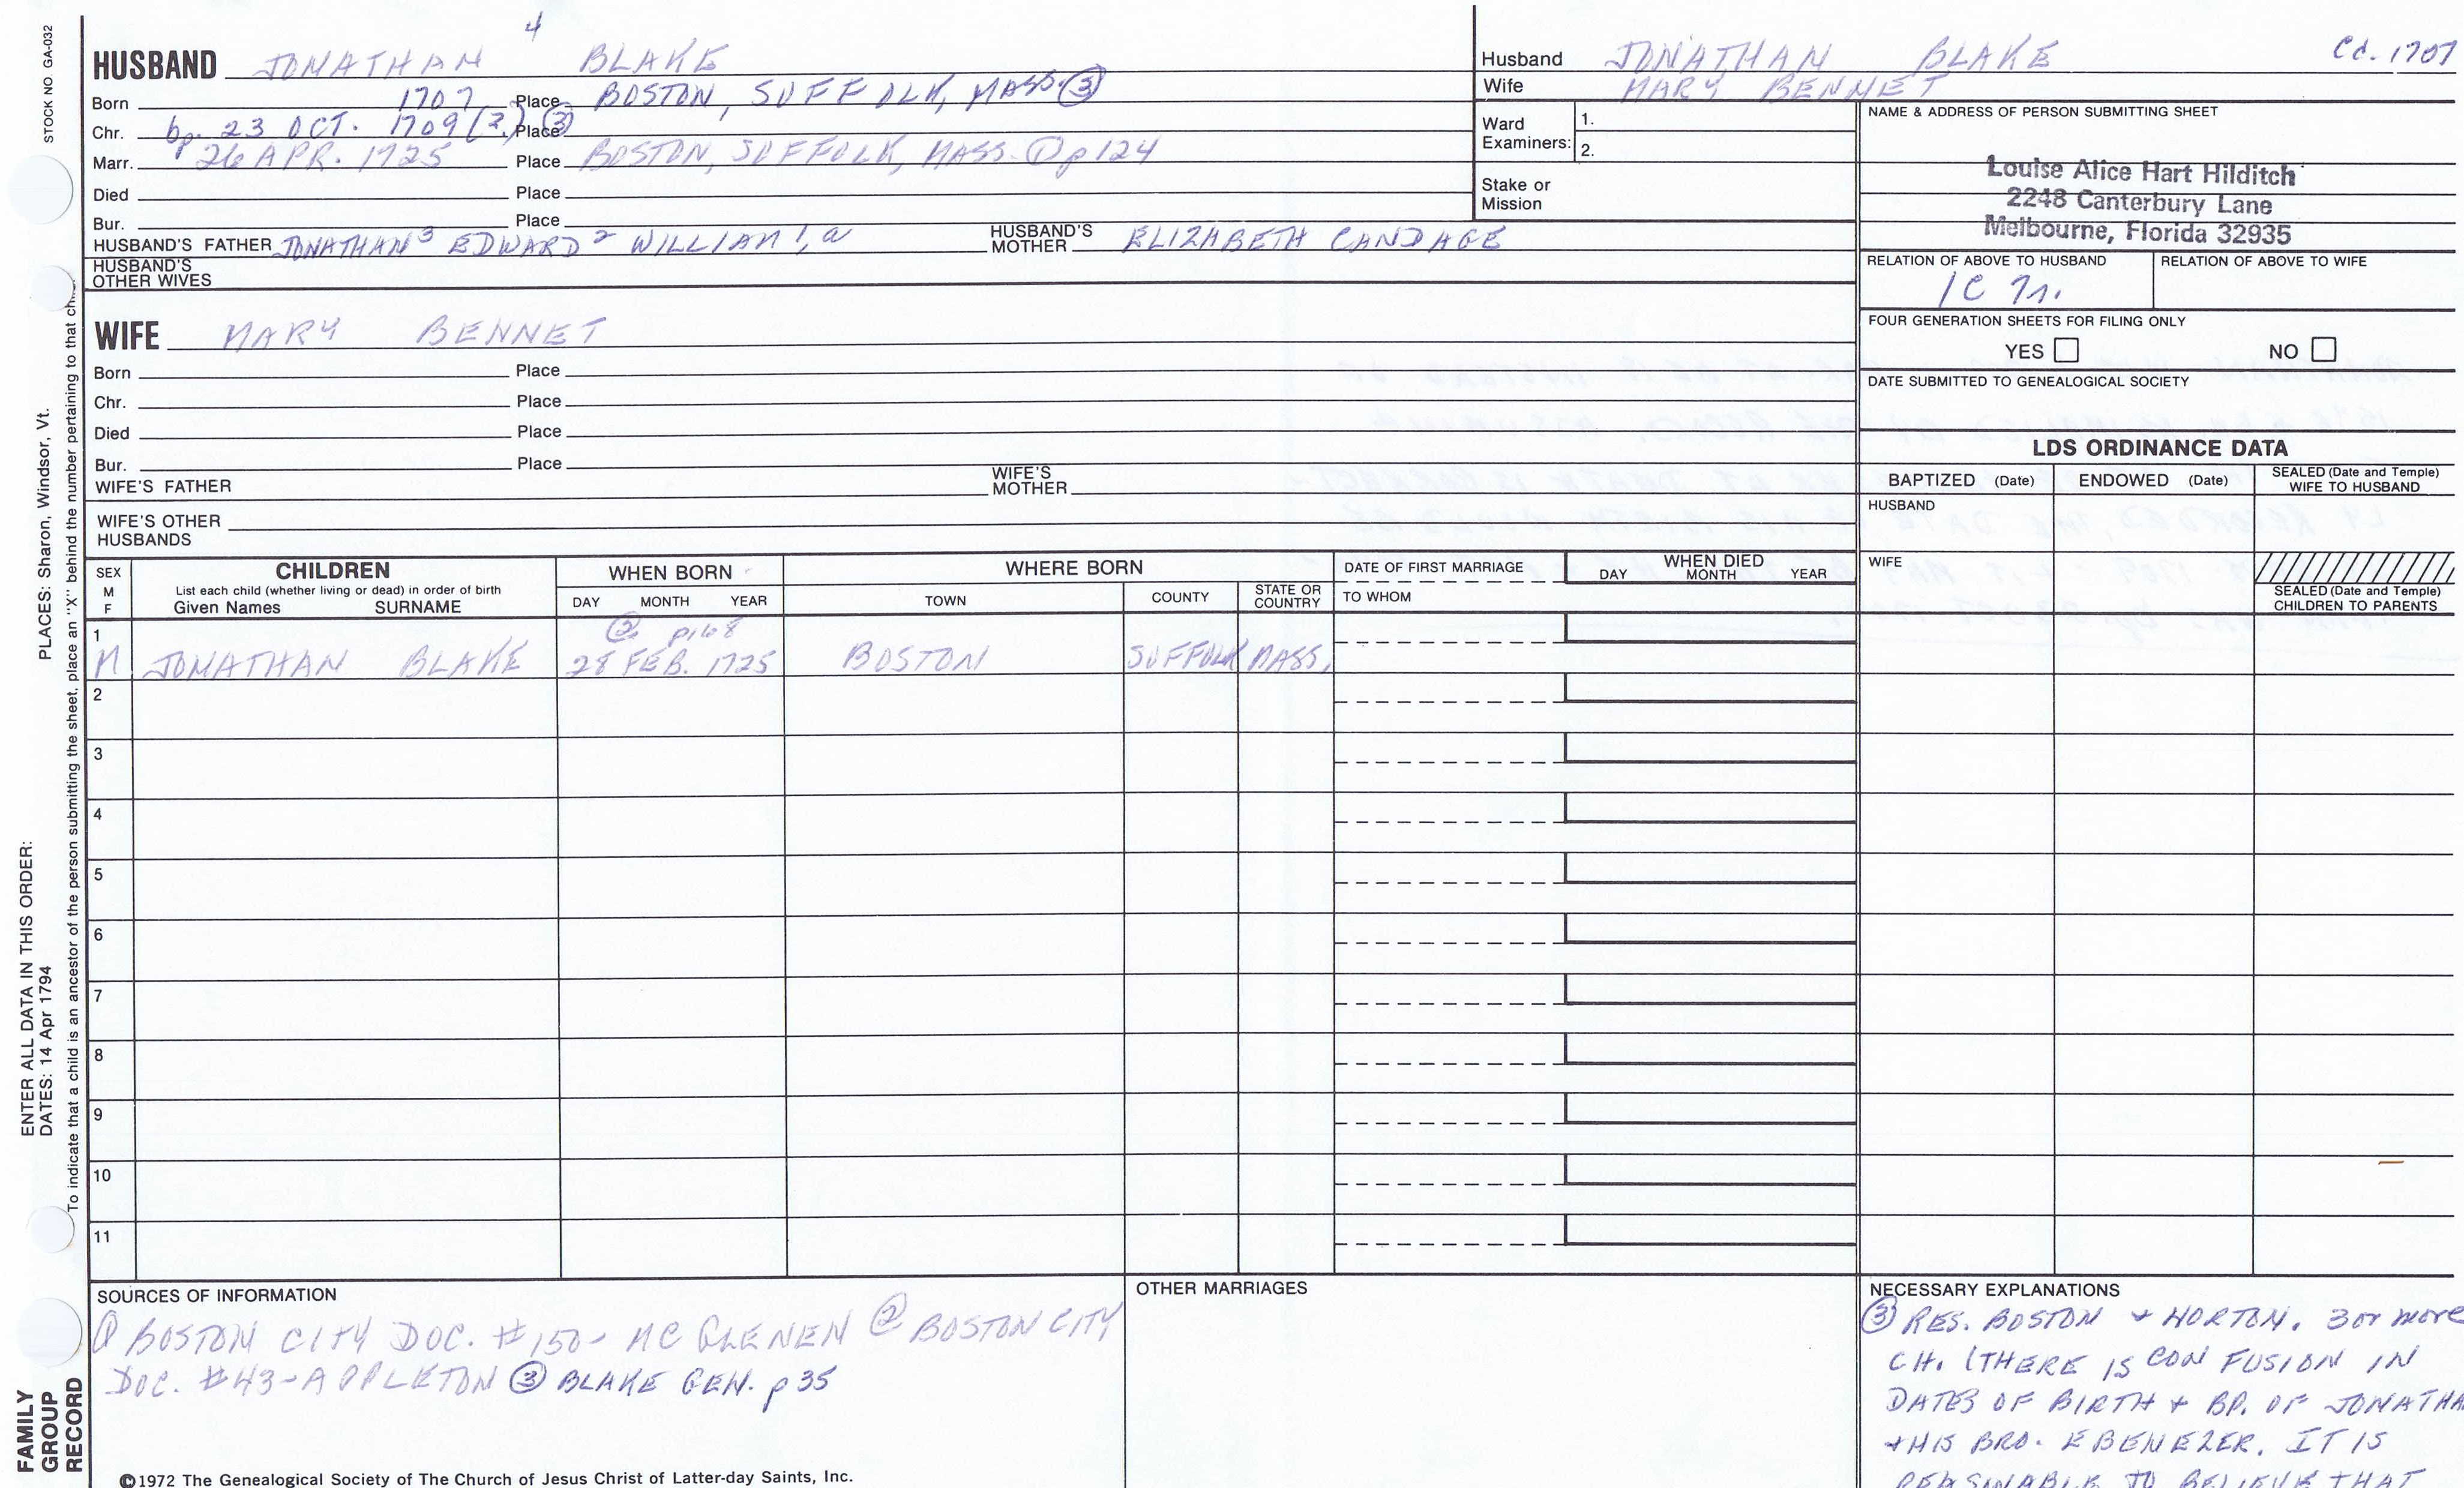 STOCK NO. GA-032
PLACES: Sharon, Windsor, Vt.
ENTER ALL DATA IN THIS ORDER:
DATES: 14 Apr 1794
To indicate that a child is an ancestor of the person submitting the sheet, place an "X" behind the number pertaining to that
FAMILY
GROUP
RECORD
4
HUSBAND JONATHAN BLAKE
Born 1707 Place BOSTON, SUFFOLK, MASS. ③
Chr. bp. 23 OCT. 1709 (2) ③ Place
Marr. 26 APR. 1725 Place BOSTON, SUFFOLK, MASS. ① p124
Died Place
Bur. Place
HUSBAND'S FATHER JONATHAN³ EDWARD² WILLIAM¹, a HUSBAND'S MOTHER ELIZABETH CANDAGE
HUSBAND'S OTHER WIVES
WIFE MARY BENNET
Born Place
Chr. Place
Died Place
Bur. Place
WIFE'S FATHER WIFE'S MOTHER
WIFE'S OTHER HUSBANDS
Husband JONATHAN BLAKE Cd. 1707
Wife MARY BENNET
Ward Examiners: 1.
2.
Stake or Mission
NAME & ADDRESS OF PERSON SUBMITTING SHEET
Louise Alice Hart Hilditch
2248 Canterbury Lane
Melbourne, Florida 32935
RELATION OF ABOVE TO HUSBAND RELATION OF ABOVE TO WIFE
1C 7r.
FOUR GENERATION SHEETS FOR FILING ONLY
YES NO
DATE SUBMITTED TO GENEALOGICAL SOCIETY
LDS ORDINANCE DATA
BAPTIZED (Date) ENDOWED (Date) SEALED (Date and Temple) WIFE TO HUSBAND
HUSBAND
WIFE
SEALED (Date and Temple) CHILDREN TO PARENTS
SEX M F CHILDREN WHEN BORN WHERE BORN DATE OF FIRST MARRIAGE WHEN DIED
List each child (whether living or dead) in order of birth
Given Names SURNAME DAY MONTH YEAR TOWN COUNTY STATE OR COUNTRY TO WHOM DAY MONTH YEAR
1 ② p168
M JONATHAN BLAKE 28 FEB. 1725 BOSTON SUFFOLK MASS.
2
3
4
5
6
7
8
9
10
11
SOURCES OF INFORMATION
① BOSTON CITY DOC. #150- MC GLENEN ② BOSTON CITY
DOC. #43-APPLETON ③ BLAKE GEN. p 35
OTHER MARRIAGES
NECESSARY EXPLANATIONS
③ RES. BOSTON + NORTON. 3 or more
CH. (THERE IS CONFUSION IN
DATES OF BIRTH + BP. OF JONATHA
+ HIS BRO. EBENEZER. IT IS
REASONABLE TO BELIEVE THAT
©1972 The Genealogical Society of The Church of Jesus Christ of Latter-day Saints, Inc.